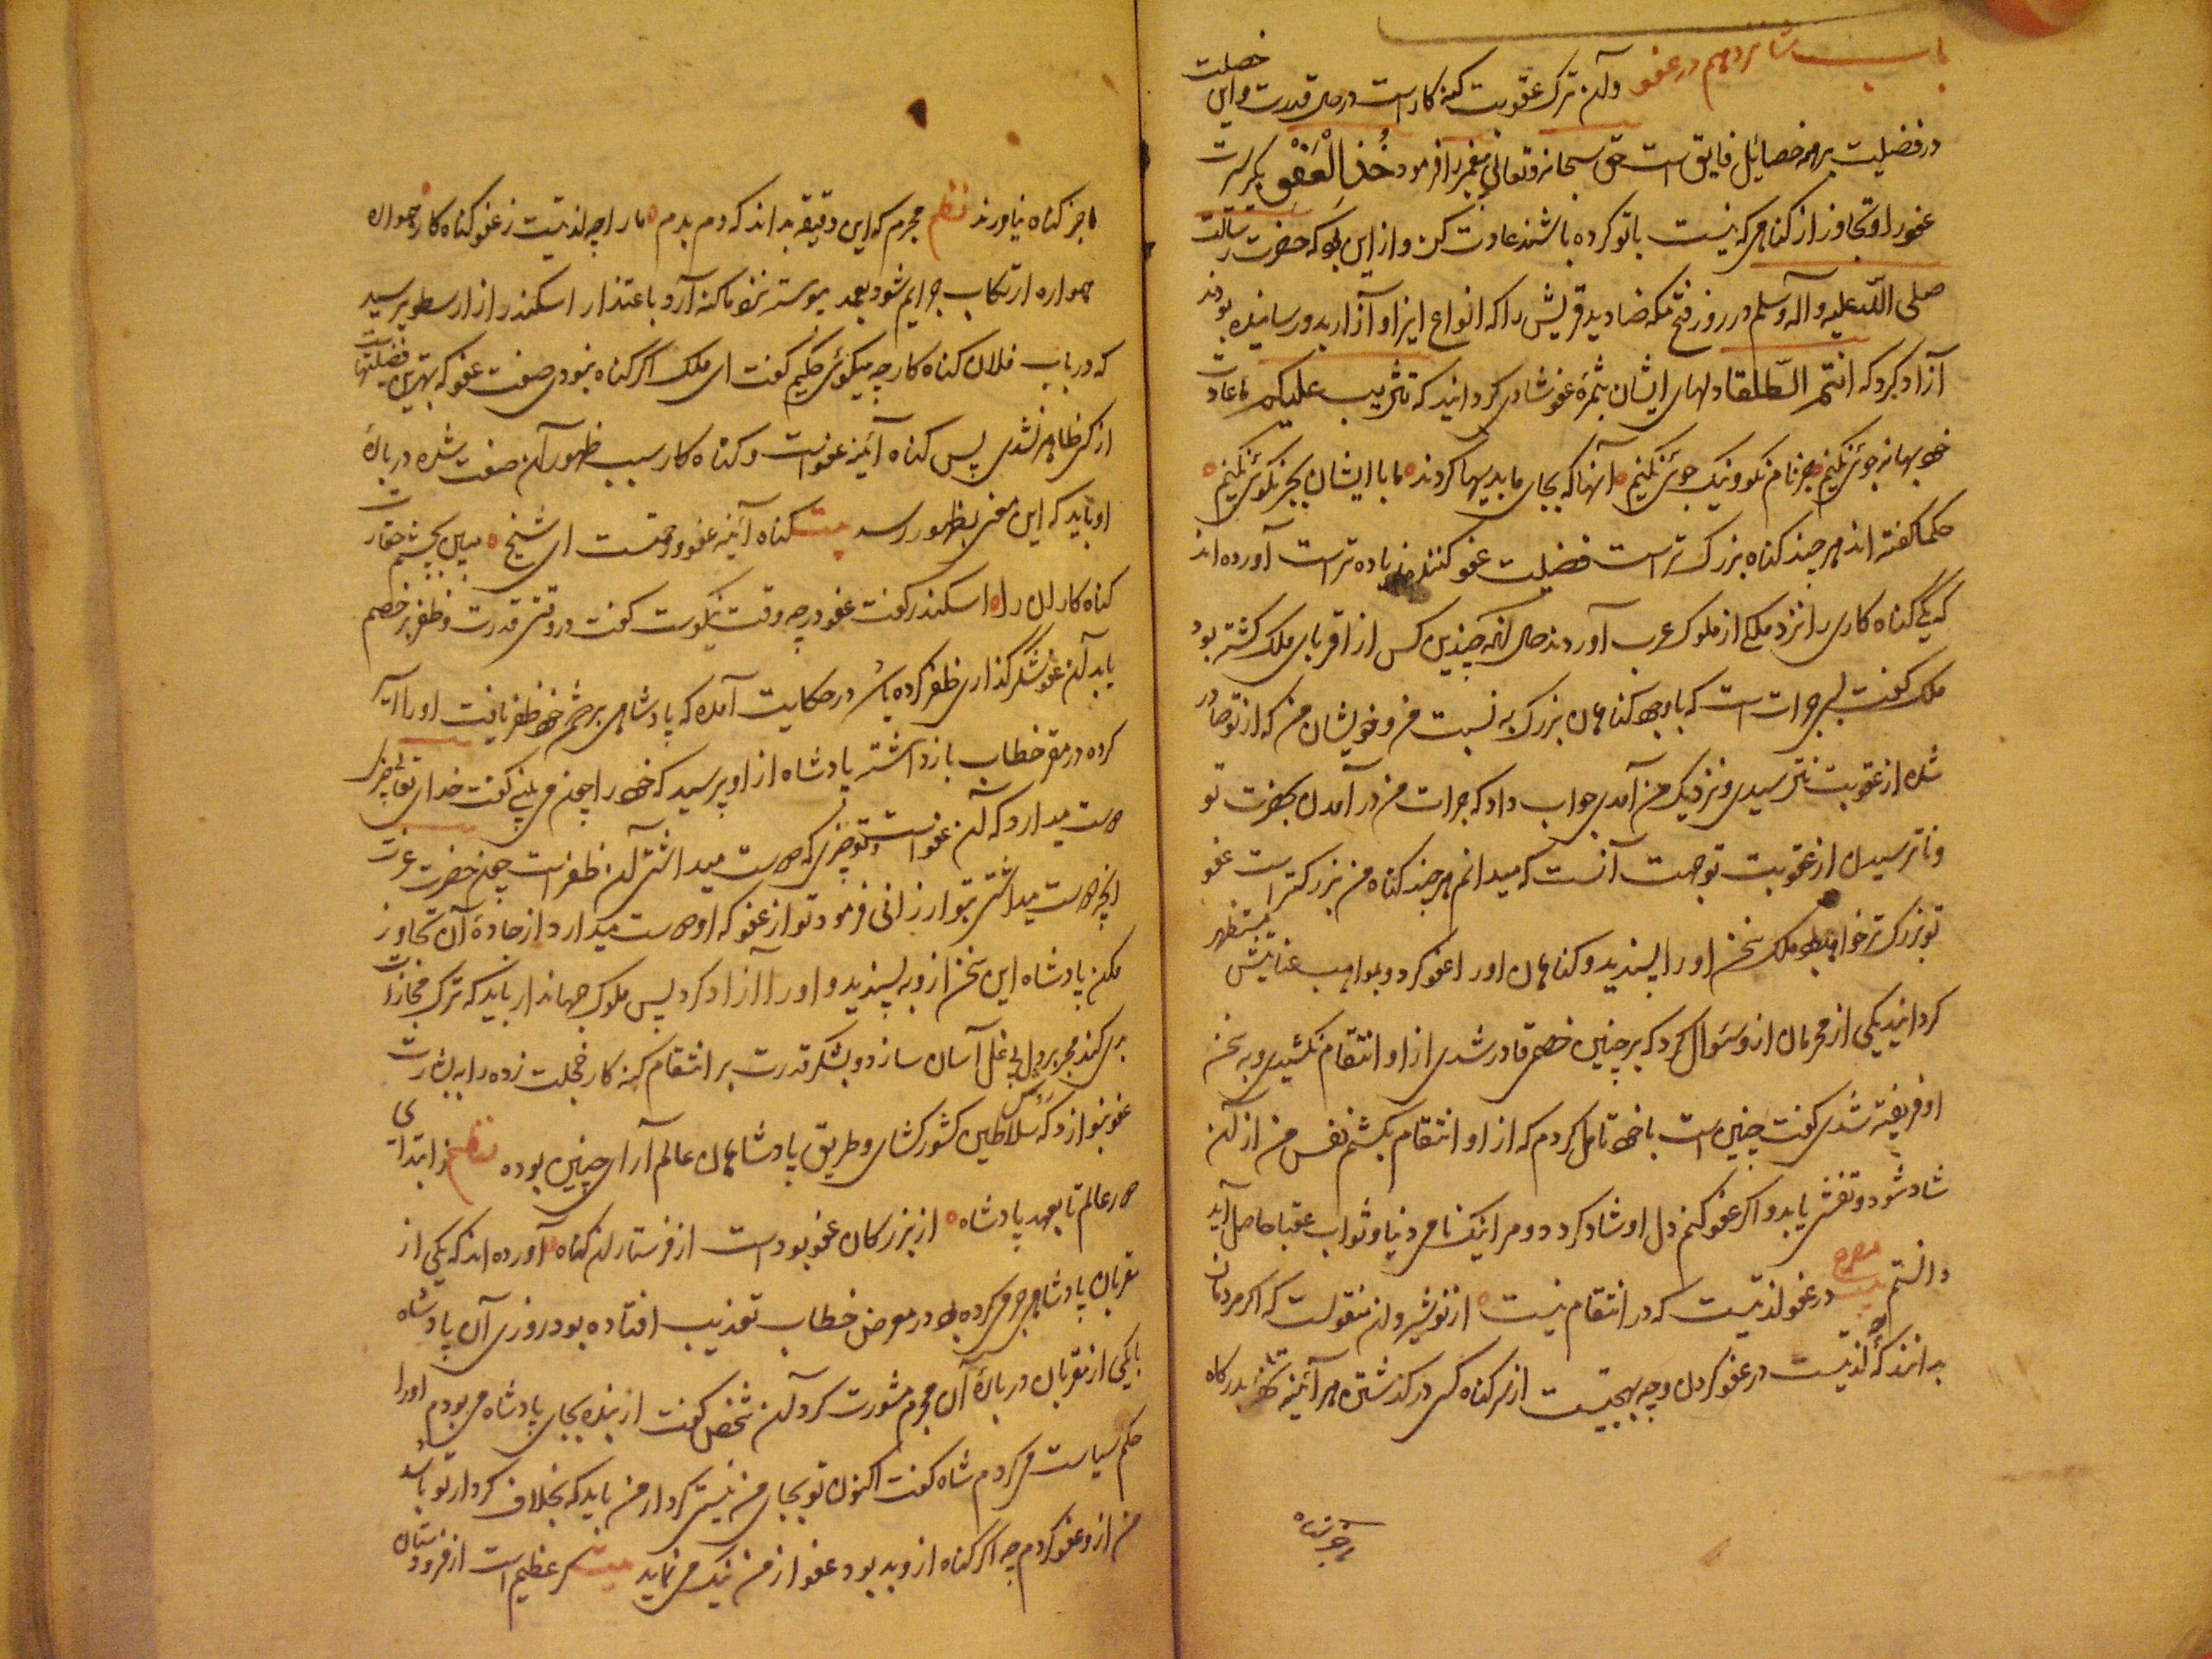 باب شانزدهم در عفو و آن ترک عقوبت گنه کار است در حال قدرت و این خصلت
در فضیلت بر همه خصایل فایق است حق سبحانه و تعالی پیغمبر را فرمود خُذِ الْعَفْوَ بگیر سیرت
عفو را و تجاوز از گناه هر که نسبت با تو کرده باشند عادت کن و از این بود که حضرت رسالت
صلی الله علیه و آله و سلم در روز فتح مکه صنادید قریش را که انواع ایذا و آزار بدو رسانیده بودند
آزاد کرد که انتم الطلقا و دلهای ایشان بثمرهٔ عفو شاد می گردانید که تثریب علیکم ما عادت
خود بهانه جوئی نکنیم جز نام نکو و نیک جوئی نکنیم آنها که بجای ما بدیها کردند ما با ایشان بجز نکوئی نکنیم
حکما گفته اند هر چند گناه بزرگ تر است فضیلت عفو کننده زیاده تر است آورده اند
که یکی گناه کاری را نزد ملکی از ملوک عرب آوردند حال آنکه چندین کس از اقربای ملک کشته بود
ملک گفت بس جرات است که با وجود گناهان بزرگ به نسبت من و خویشان من که از تو صادر
شده از عقوبت نترسیدی و نزدیک من آمدی جواب داد که جرات من در آمدن بحضرت تو
و ناترسیدن از عقوبت تو جهت آنست که میدانم هر چند گناه من بزرگتر است عفو
تو بزرگ تر خواهد بود ملک سخن او را پسندید و گناهان او را عفو کرد و بمواهب عنایتش مستظهر
گردانید یکی از محرمان ازو سئوال کرد که بر چنین خصمی قادر شدی از او انتقام نکشیدی و به سخن
او فریفته شدی گفت چنین است با خود تامل کردم که از او انتقام بکشم نفس من از آن
شاد شود و تشفی یابد و اگر عفو کنم دل او شاد گردد و مرا نیک نامی دنیا و ثواب عقبا حاصل آید
دانستم مصرع در عفو لذتیست که در انتقام نیست از نوشیروان منقولست که اگر مردمان
بدانند که چه لذتیست در عفو کردن و چه بهجتیست از سر گناه کسی در گذشتن هر آئینه تحفه بدرگاه
ما جز گناه
ما جز گناه نیاورند نظم مجرم که این دقیقه بداند که دم بدم ما را چه لذتیست ز عفو گناه کار همواره
همواره ارتکاب جرایم شود بعمد پیوسته نزد ما گنه آرد باعتذار اسکندر از ارسطو پرسید
که در باب فلان گناه کار چه میگوئی حکیم گفت ای ملک اگر گناه نبودی صفت عفو که بهترین فضیلتهاست
از کسی ظاهر نشدی پس گناه آئینه عفو است و گناه کار سبب ظهور آن صفت شده در بارهٔ
او باید که این معنی بظهور رسد بیت گناه آئینه عفو و رحمتست ای شیخ مبین بچشم حقارت
گناه کاران را اسکندر گفت عفو در چه وقت نیکوست گفت در وقت قدرت و ظفر بر خصم
باید آن عفو شکر گذاری ظفر کرده باشد در حکایت آمده که پادشاهی بر خصم خود ظفر یافت او را
کرده در معرض خطاب بازداشته پادشاه از او پرسید که خود را چون می بینی گفت خدای تعالی چیزی
دوست میدارد که آن عفو است و تو چیزی که دوست میداشتی آن ظفر است چون حضرت عزت
آنچه دوست میداشتی بتو ارزانی فرمود تو از عفو که او دوست میدارد از جادهٔ آن تجاوز
مکن پادشاه این سخن از وی بپسندید و او را آزاد کرد پس ملوک جهاندار باید که ترک مجازات
بدی کند مجرم بر دل بی غل آسان سازد و بشکر قدرت بر انتقام گنه کار خجلت زده را به بشارت
عفو بنوازد که روش سلاطین کشور کشای و طریق پادشاهان عالم آرای چنین بوده نظم ز ابتدای
دور عالم تا بعهد پادشاه از بزرگان عفو بودست از فرستاران گناه آورده اند که یکی از
مقربان پادشاهی جرمی کرده بود در معرض خطاب تعذیب افتاده بود روزی آن پادشاه
با یکی از مقربان در بارهٔ آن مجرم مشورت کرد آن شخص گفت از بنده بجای پادشاه می بودم او را
حکم سیاست می کردم شاه گفت اکنون تو بجای من نیستی کردار من باید که بخلاف کردار تو باشد
من ازو عفو کردم چه اگر گناه از وی بد بود عفو از من نیک می نماید بیت گر عظیم است از فرودستان